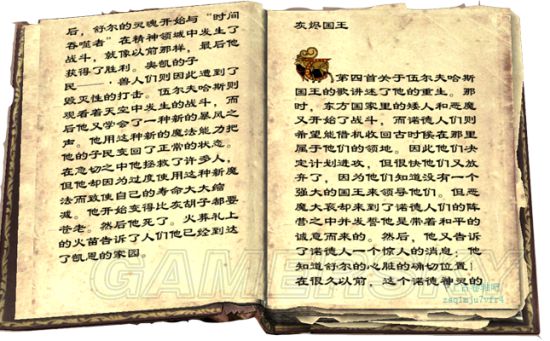 后，舒尔的灵魂开始与“时间
吞噬者”在精神领域中发生了
战斗，就像以前那样，最后他
获得了胜利。奥凯的子
民——，兽人们则因此遭到了
毁灭性的打击。伍尔夫哈斯则
观看着天空中发生的战斗，而
后他又学会了一种新的暴风之
声。他用这种新的魔法能力把
他的子民变回了正常的状态。
在急切之中他拯救了许多人，
但他却因为过度使用这种新魔
法而致使自己的寿命大大缩
减。他开始变得比灰胡子都要
苍老。然后他死了。火葬礼上
的火苗告诉了人们他已经到达
了凯恩的家园。
灰烬国王
第四首关于伍尔夫哈斯
国王的歌讲述了他的重生。那
时，东方国家里的矮人和恶魔
又开始了战斗，而诺德人们则
希望能借机收回古时候在那里
属于他们的领地。因此他们决
定计划进攻，但很快他们又放
弃了，因为他们知道没有一个
强大的国王来领导他们。但恶
魔大衮却来到了诺德人们的阵
营之中并发誓他是带着和平的
诚意而来的。然后，他又告诉
了诺德人一个惊人的消息：他
知道舒尔的心脏的确切位置！
在很久以前，这个诺德神灵的
GAMERSKY
zsqimju7vfr4